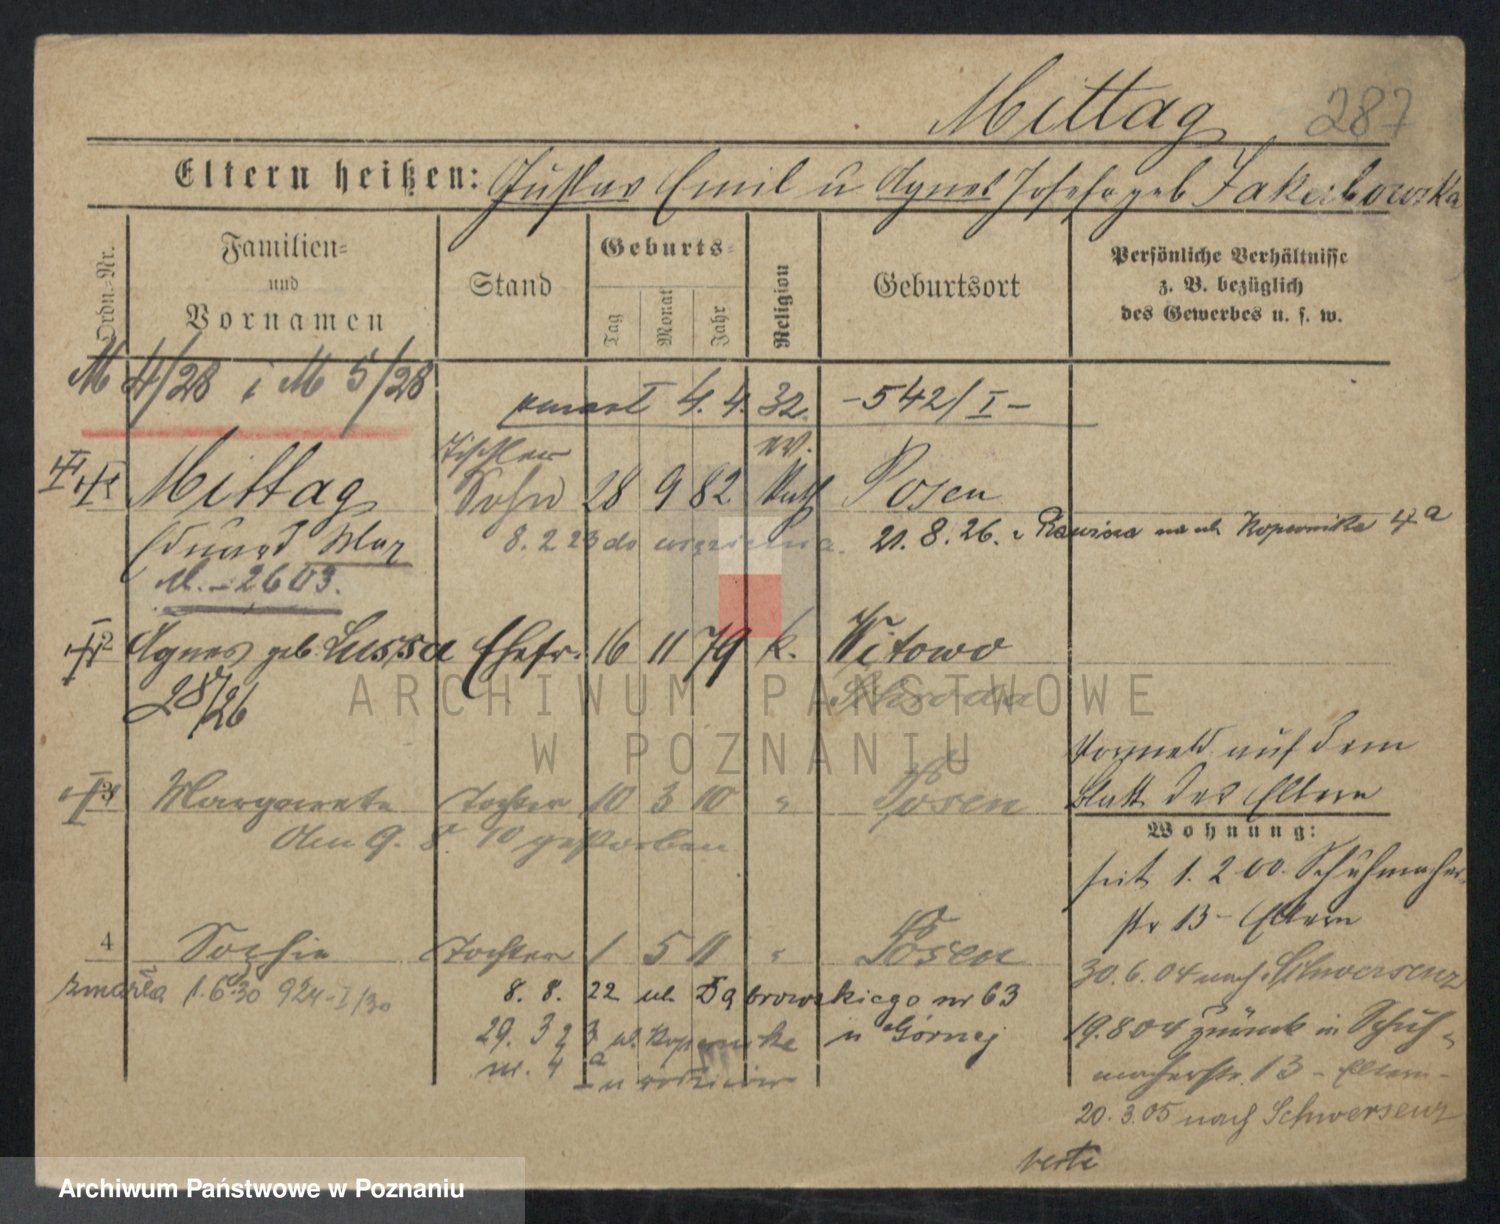 Mittag 287
Eltern heißen: Gustav Emil u Agnes Josefa geb Jakubowska
Ordn.-Nr.
Familien- und Vornamen
Stand
Geburts-
Tag Monat Jahr
Religion
Geburtsort
Persönliche Verhältnisse
z. B. bezüglich
des Gewerbes u. s. w.
M 4/28 i M 5/28
zmarł 4.4.32. -542/I-
Tischler ev.
Mittag Sohn 28 9 82 Posen
Eduard Max 8. 2 23 do więzienia. 21. 8. 26. z Rawicza na ul. Kopernika 4a
M. - 2603.
2 Agnes geb. Lussa Ehefr. 16 11 79 k. Witowo
28/26 Schroda
3 Margarete Tochter 10 3 10 " Posen
den 9. 8. 10 gestorben
auf dem
Blatt der Eltern
Wohnung:
seit 1. 2 00. Schuhmacher
str 13 - Eltern
4 Sophie Tochter 1 5 11 " Posen
30.6.04 nach Schwersenz
zmarła 1.6.30 924-I/30
8. 8. 22 ul. Dąbrowskiego nr 63
29. 3 23 ul. Kopernika u Górnej
nr. 4a u rodziców
19.8 04 zurück in Schuh-
macherstr. 13 - Eltern -
20. 3. 05 nach Schwersenz
verte
ARCHIWUM PAŃSTWOWE
W POZNANIU
Archiwum Państwowe w Poznaniu